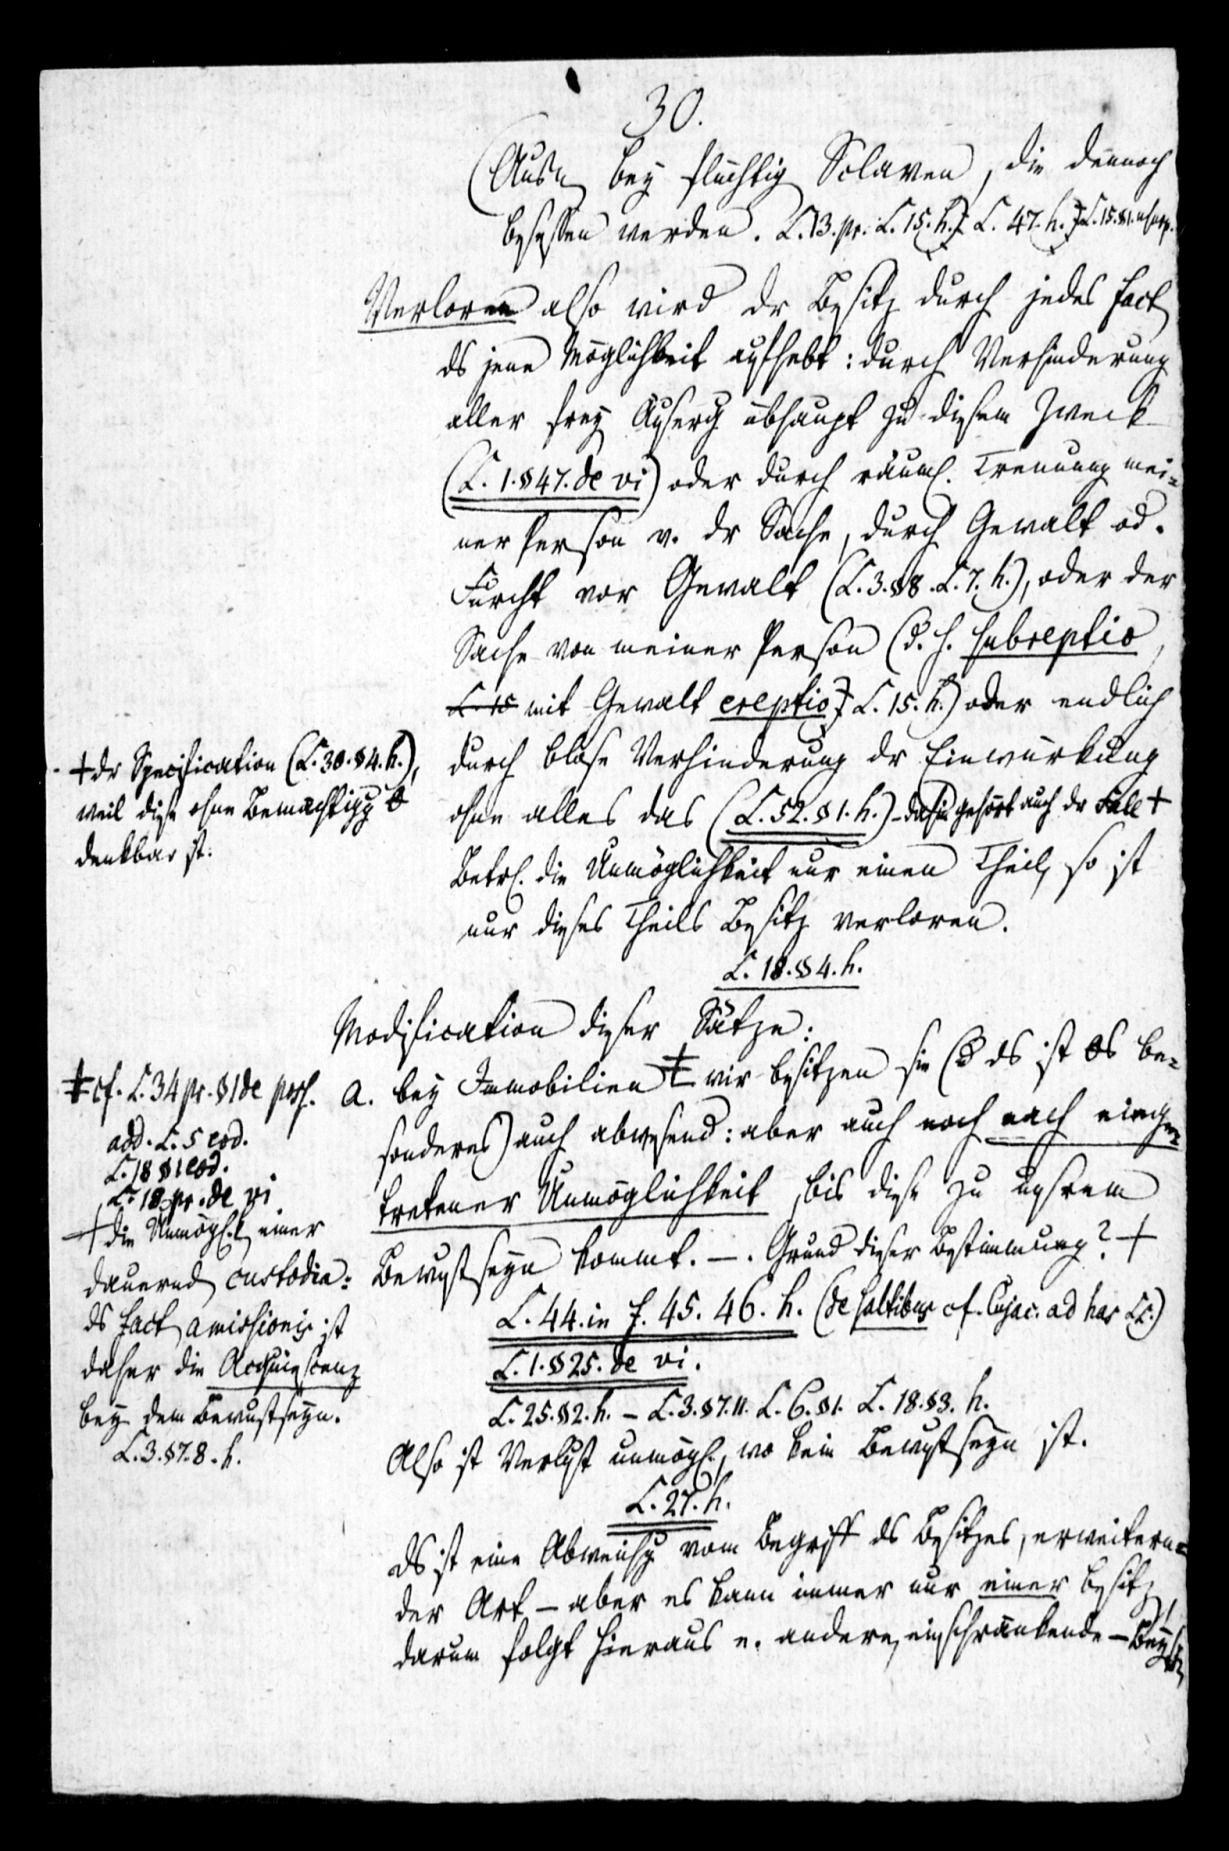 30.
(Ausn bey flüchtig Sclaven, die dennoch
besessen werden. L. 13. pr. L. 15. h. L. 47. h. L. 15. §1.
Verloren also wird dr Besitz durch jedes Fact
ds jene Möglichkeit aufhebt: durch Verhinderung
aller frey Äuserg übhaupt zu diesem Zweck
(L. 1. §47. de vi) oder durch räuml. Trennung mei-
ner Person v. dr Sache, durch Gewalt od.
Furcht vor Gewalt (L. 3. §8. L. 7. h.), oder der
Sache von meiner Person (d. h. subreptio,
L. 15 mit Gewalt ereptio L. 15. h.) oder endlich
durch blose Verhinderung dr Einwürkung
ohne alles das (L. 52. §1. h.) - dahin gehört auch dr Fall +
+ dr Specification (L. 30. §4. h.),
weil diese ohne Bemächtigg
denkbar ist.
Betrf. die Unmöglichkeit nur einen Theil, so ist
nur dieses Theils Besitz verloren.
L. 18. §4. h.
Modification dieser Sätze:
a. bey Immobilien ‡ wir besitzen sie ( ds ist be-
sonderes) auch abwesend: aber auch noch nach einge-
tretener Unmöglichkeit, bis diese zu unsrem
Bewustseyn kommt. —. Grund dieser Bestimmung? +
‡ cf. L. 34 pr. §1 de poss.
add. L. 5 eod.
L. 18 §1 eod.
L. 18. pr. de vi
+ die Unmöglk. einer
dauernd custodia:
ds Fact amissionis ist
daher die Acquiescenz
bey dem Bewustseyn.
L. 3. §7. 8. h.
L. 44. in f. 45. 46. h. (de saltibus cf. Cujac. ad has LL.)
L. 1. §25. de vi.
L. 25. §2. h. - L. 3. §7. 11. L. 6. §1. L. 18. §3. h.
Also ist Verlust unmögl., wo kein Bewustseyn ist.
L. 27. h.
Ds ist eine Abweichg vom Begriff ds Besitzes, erweitern-
der Art, — aber es kann immer nur einer besitz,
darum folgt hieraus e. andere, einschränkende —